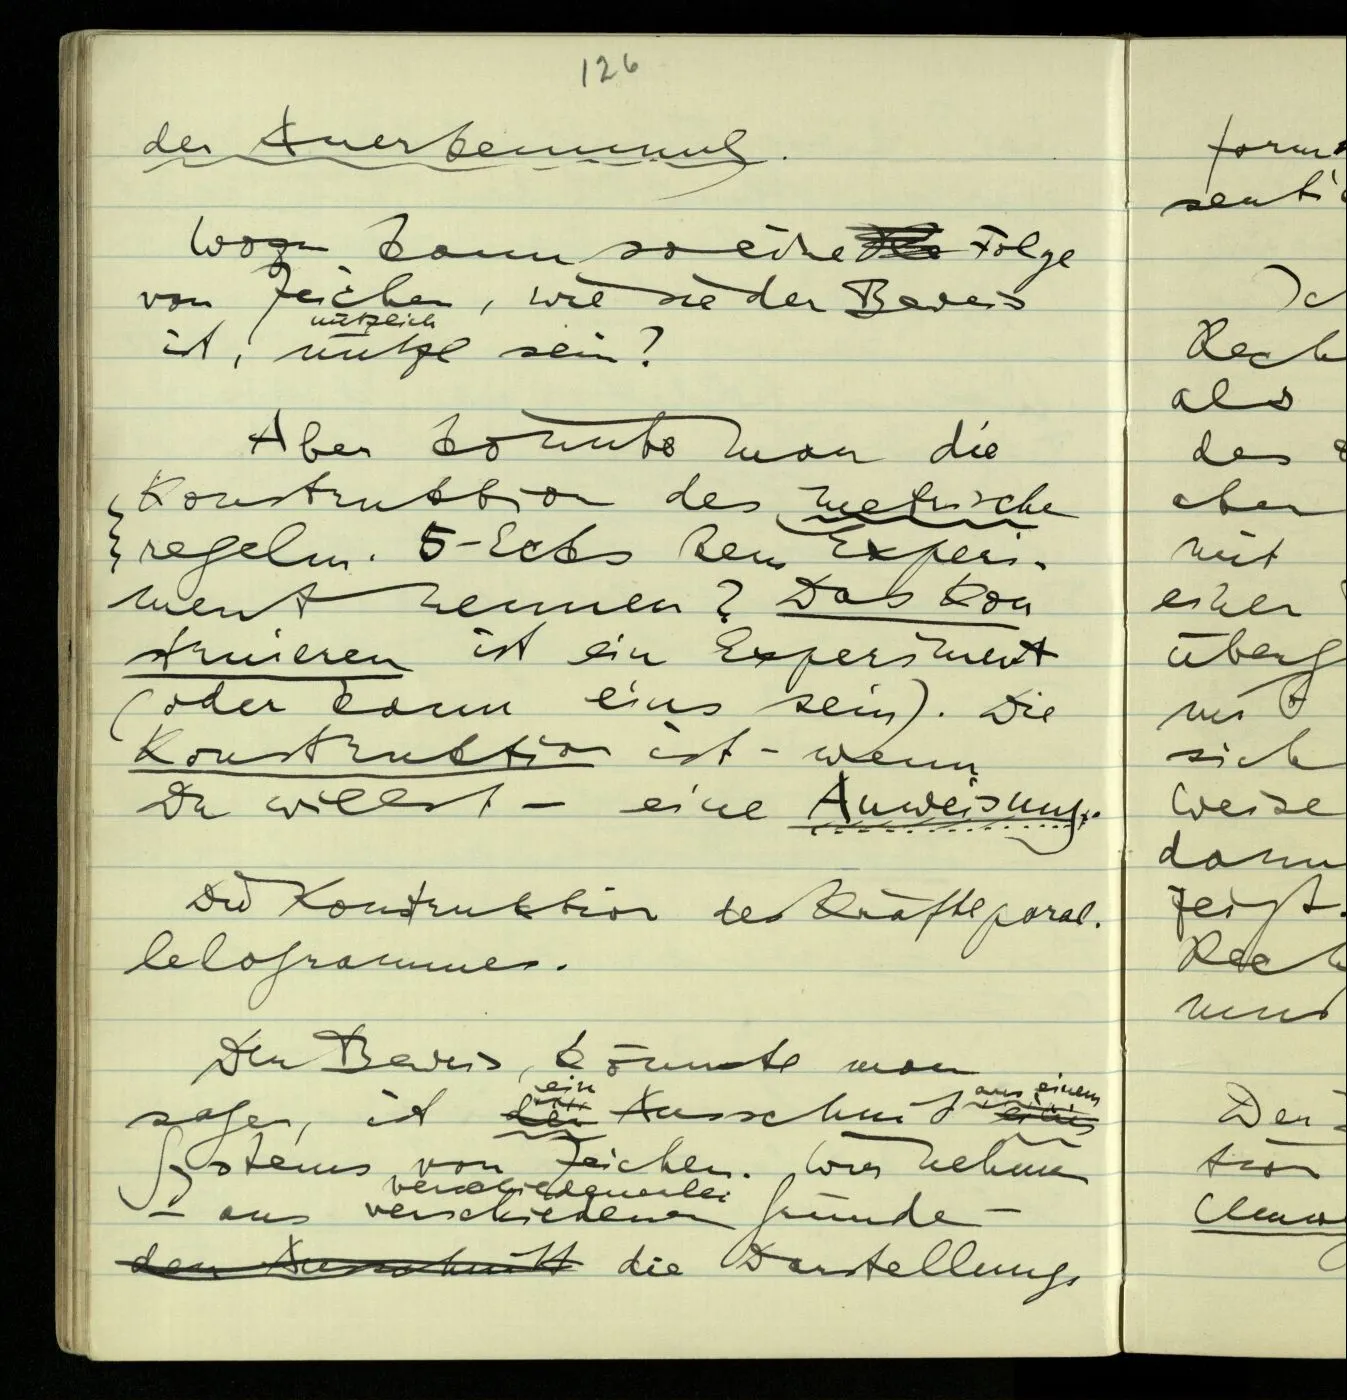 126
der Anerkennung.
Wozu kann so eine Folge
von Zeichen, wie sie der Beweis
nützlich
ist, nütze sein?
Aber könnte man die
Konstruktion des metrische
regelm. 5-Ecks kein Experi-
ment nennen? Das Kon
struieren ist ein Experiment
(oder kann eins sein). Die
Konstruktion ist – wenn
Du willst – eine Anweisung.
Die Konstruktion des Kräfteparal-
lelogrammes.
Der Beweis, könnte man
ein aus einem
sagen, ist der Ausschnitt eines
Systems von Zeichen. Wir nehmen
verschiedenerlei
– aus verschiedenen Gründen –
den Ausschnitt die Darstellungs
form
senti
Ich
Rech
als
des
aber
mit
einer
überg
sich
Weise
dann
zeigt.
Rech
Der
tion